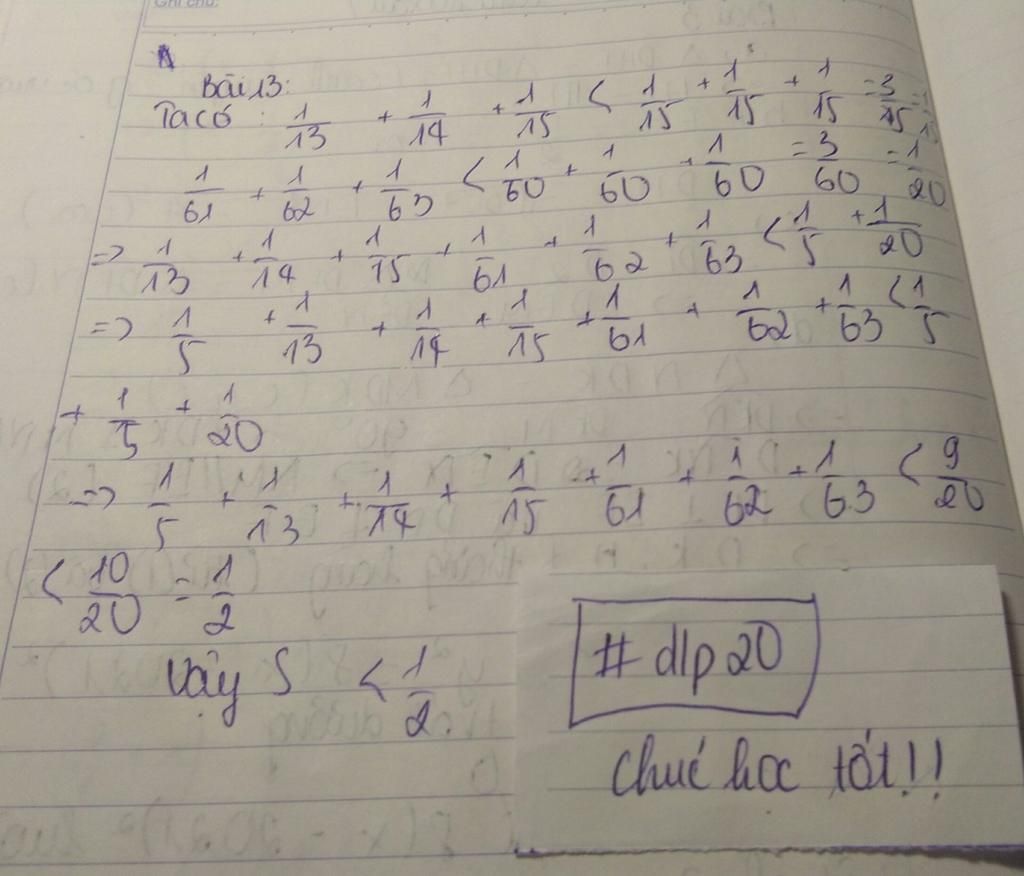 Ghi chú:
Bài 13:
Ta có : 1/13 + 1/14 + 1/15 < 1/15 + 1/15 + 1/15 = 3/15 =
1/61 + 1/62 + 1/63 < 1/60 + 1/60 + 1/60 = 3/60 = 1/20
=> 1/13 + 1/14 + 1/15 + 1/61 + 1/62 + 1/63 < 1/5 + 1/20
=> 1/5 + 1/13 + 1/14 + 1/15 + 1/61 + 1/62 + 1/63 < 1/5
+ 1/5 + 1/20
=> 1/5 + 1/13 + 1/14 + 1/15 + 1/61 + 1/62 + 1/63 < 9/20
< 10/20 = 1/2
Vậy S < 1/2.
# dlp20
Chúc học tốt!!